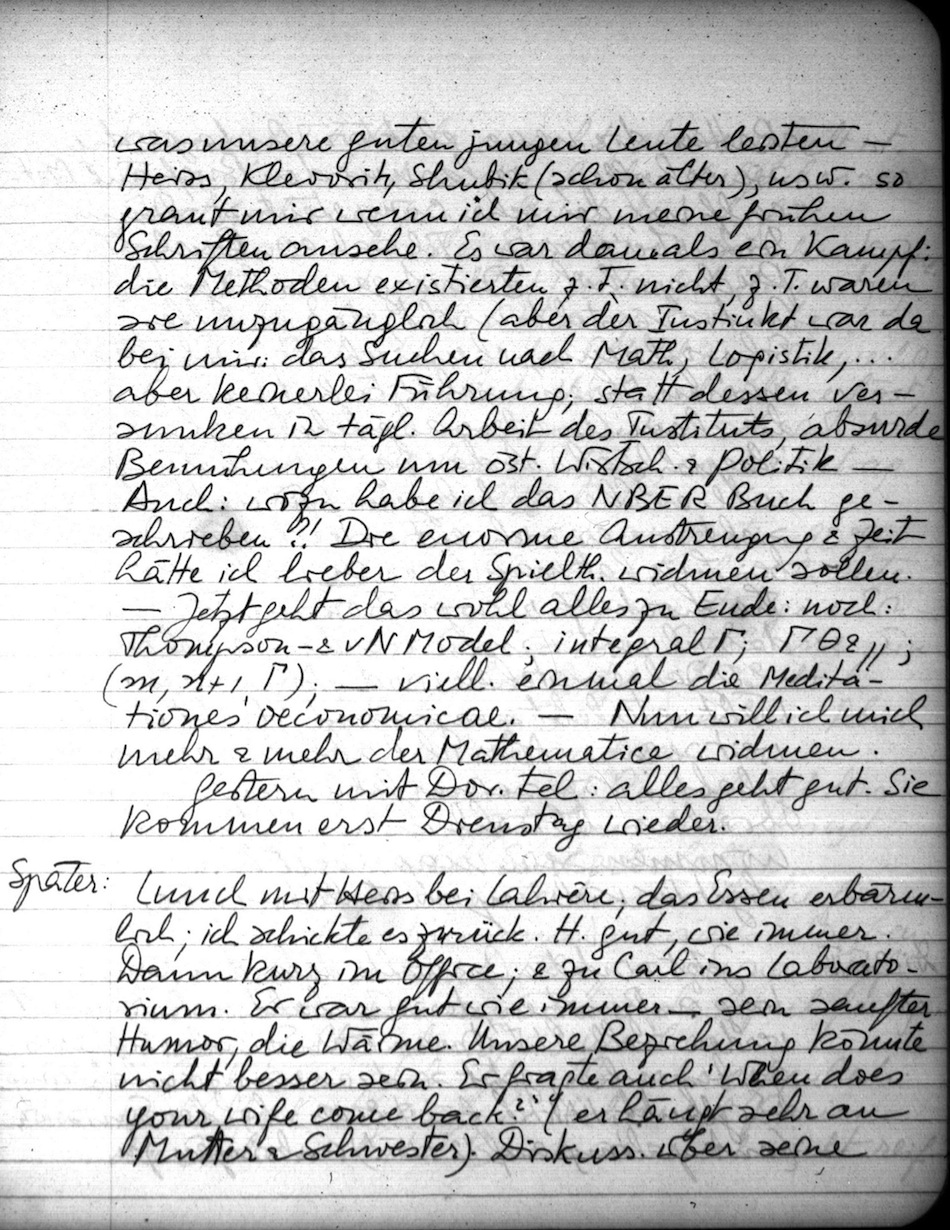 was unsere guten jungen Leute leisten —
Heiss, Klevorick, Shubik (schon älter), usw. so
graut mir wenn ich mir meine frühen
Schriften ansehe. Es war damals ein Kampf:
die Methoden existierten z.T. nicht, z.T. waren
sie unzugänglich (aber der Instinkt war da
bei mir: das Suchen nach Math, Logistik, ...
aber keinerlei Führung; statt dessen ver-
sunken in tägl. Arbeit des Instituts, absurde
Bemühungen um öst. Wirtsch. & Politik —
Auch: wozu habe ich das NBER Buch ge-
schrieben ?! Die enorme Anstrengung & Zeit
hätte ich lieber der Spielth. widmen sollen.
— Jetzt geht das wohl alles zu Ende: noch:
Thompson - & vN Model; integral Γ; ΓΘ ;
(m, n+1, Γ); — viell. einmal die Medita-
tiones oeconomicae. — Nun will ich mich
mehr & mehr der Mathematica widmen.
Gestern mit Dor. tel: alles geht gut. Sie
kommen erst Dienstag wieder.
Später: Lunch mit Heiss bei Lahière; das Essen erbärm-
lich; ich schickte es zurück. H. gut, wie immer.
Dann kurz im Office; & zu Carl ins Laborato-
rium. Er war gut wie immer — sein sanfter
Humor, die Wärme. Unsere Beziehung könnte
nicht besser sein. Er fragte auch "When does
your wife come back?" (er hängt sehr an
Mutter & Schwester). Diskuss. über seine